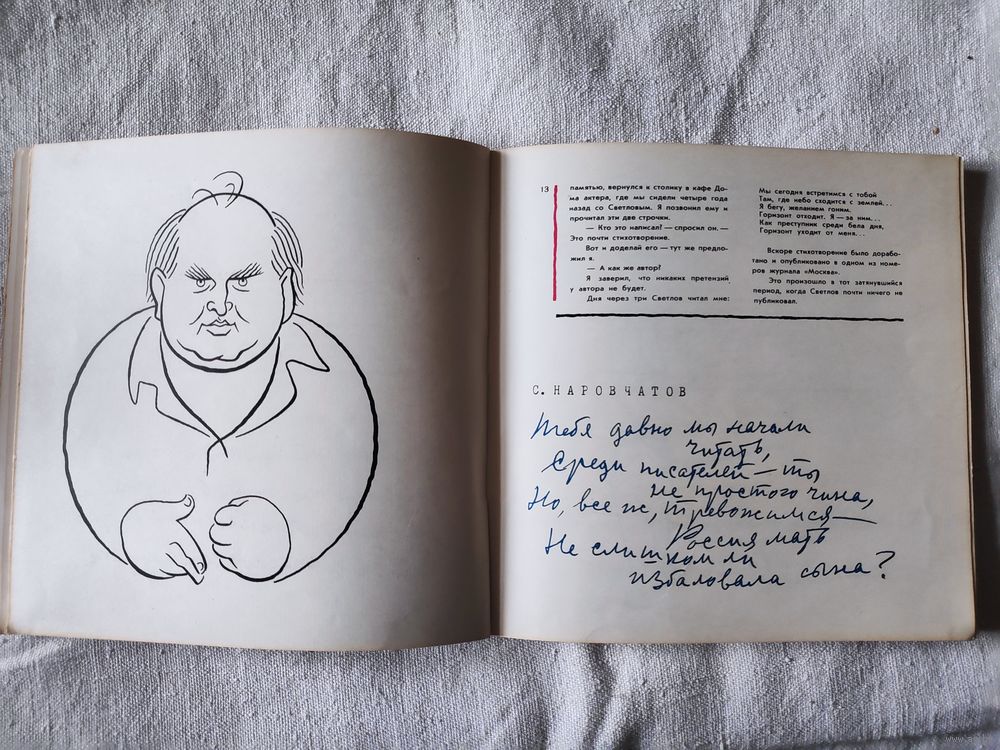 13
памятью, вернулся к столику в кафе До-
ма актера, где мы сидели четыре года
назад со Светловым. Я позвонил ему и
прочитал эти две строчки.
— Кто это написал? — спросил он. —
Это почти стихотворение.
Вот и доделай его — тут же предло-
жил я.
— А как же автор?
Я заверил, что никаких претензий
у автора не будет.
Дня через три Светлов читал мне:
Мы сегодня встретимся с тобой
Там, где небо сходится с землей...
Я бегу, желанием гоним.
Горизонт отходит. Я — за ним...
Как преступник среди бела дня,
Горизонт уходит от меня...
Вскоре стихотворение было дорабо-
тано и опубликовано в одном из номе-
ров журнала «Москва».
Это произошло в тот затянувшийся
период, когда Светлов почти ничего не
публиковал.
С. НАРОВЧАТОВ
Тебя давно мы начали
читать,
Среди писателей — ты
не простого чина,
Но, все ж, тревожимся —
Россия мать
Не слишком ли
избаловала сына?